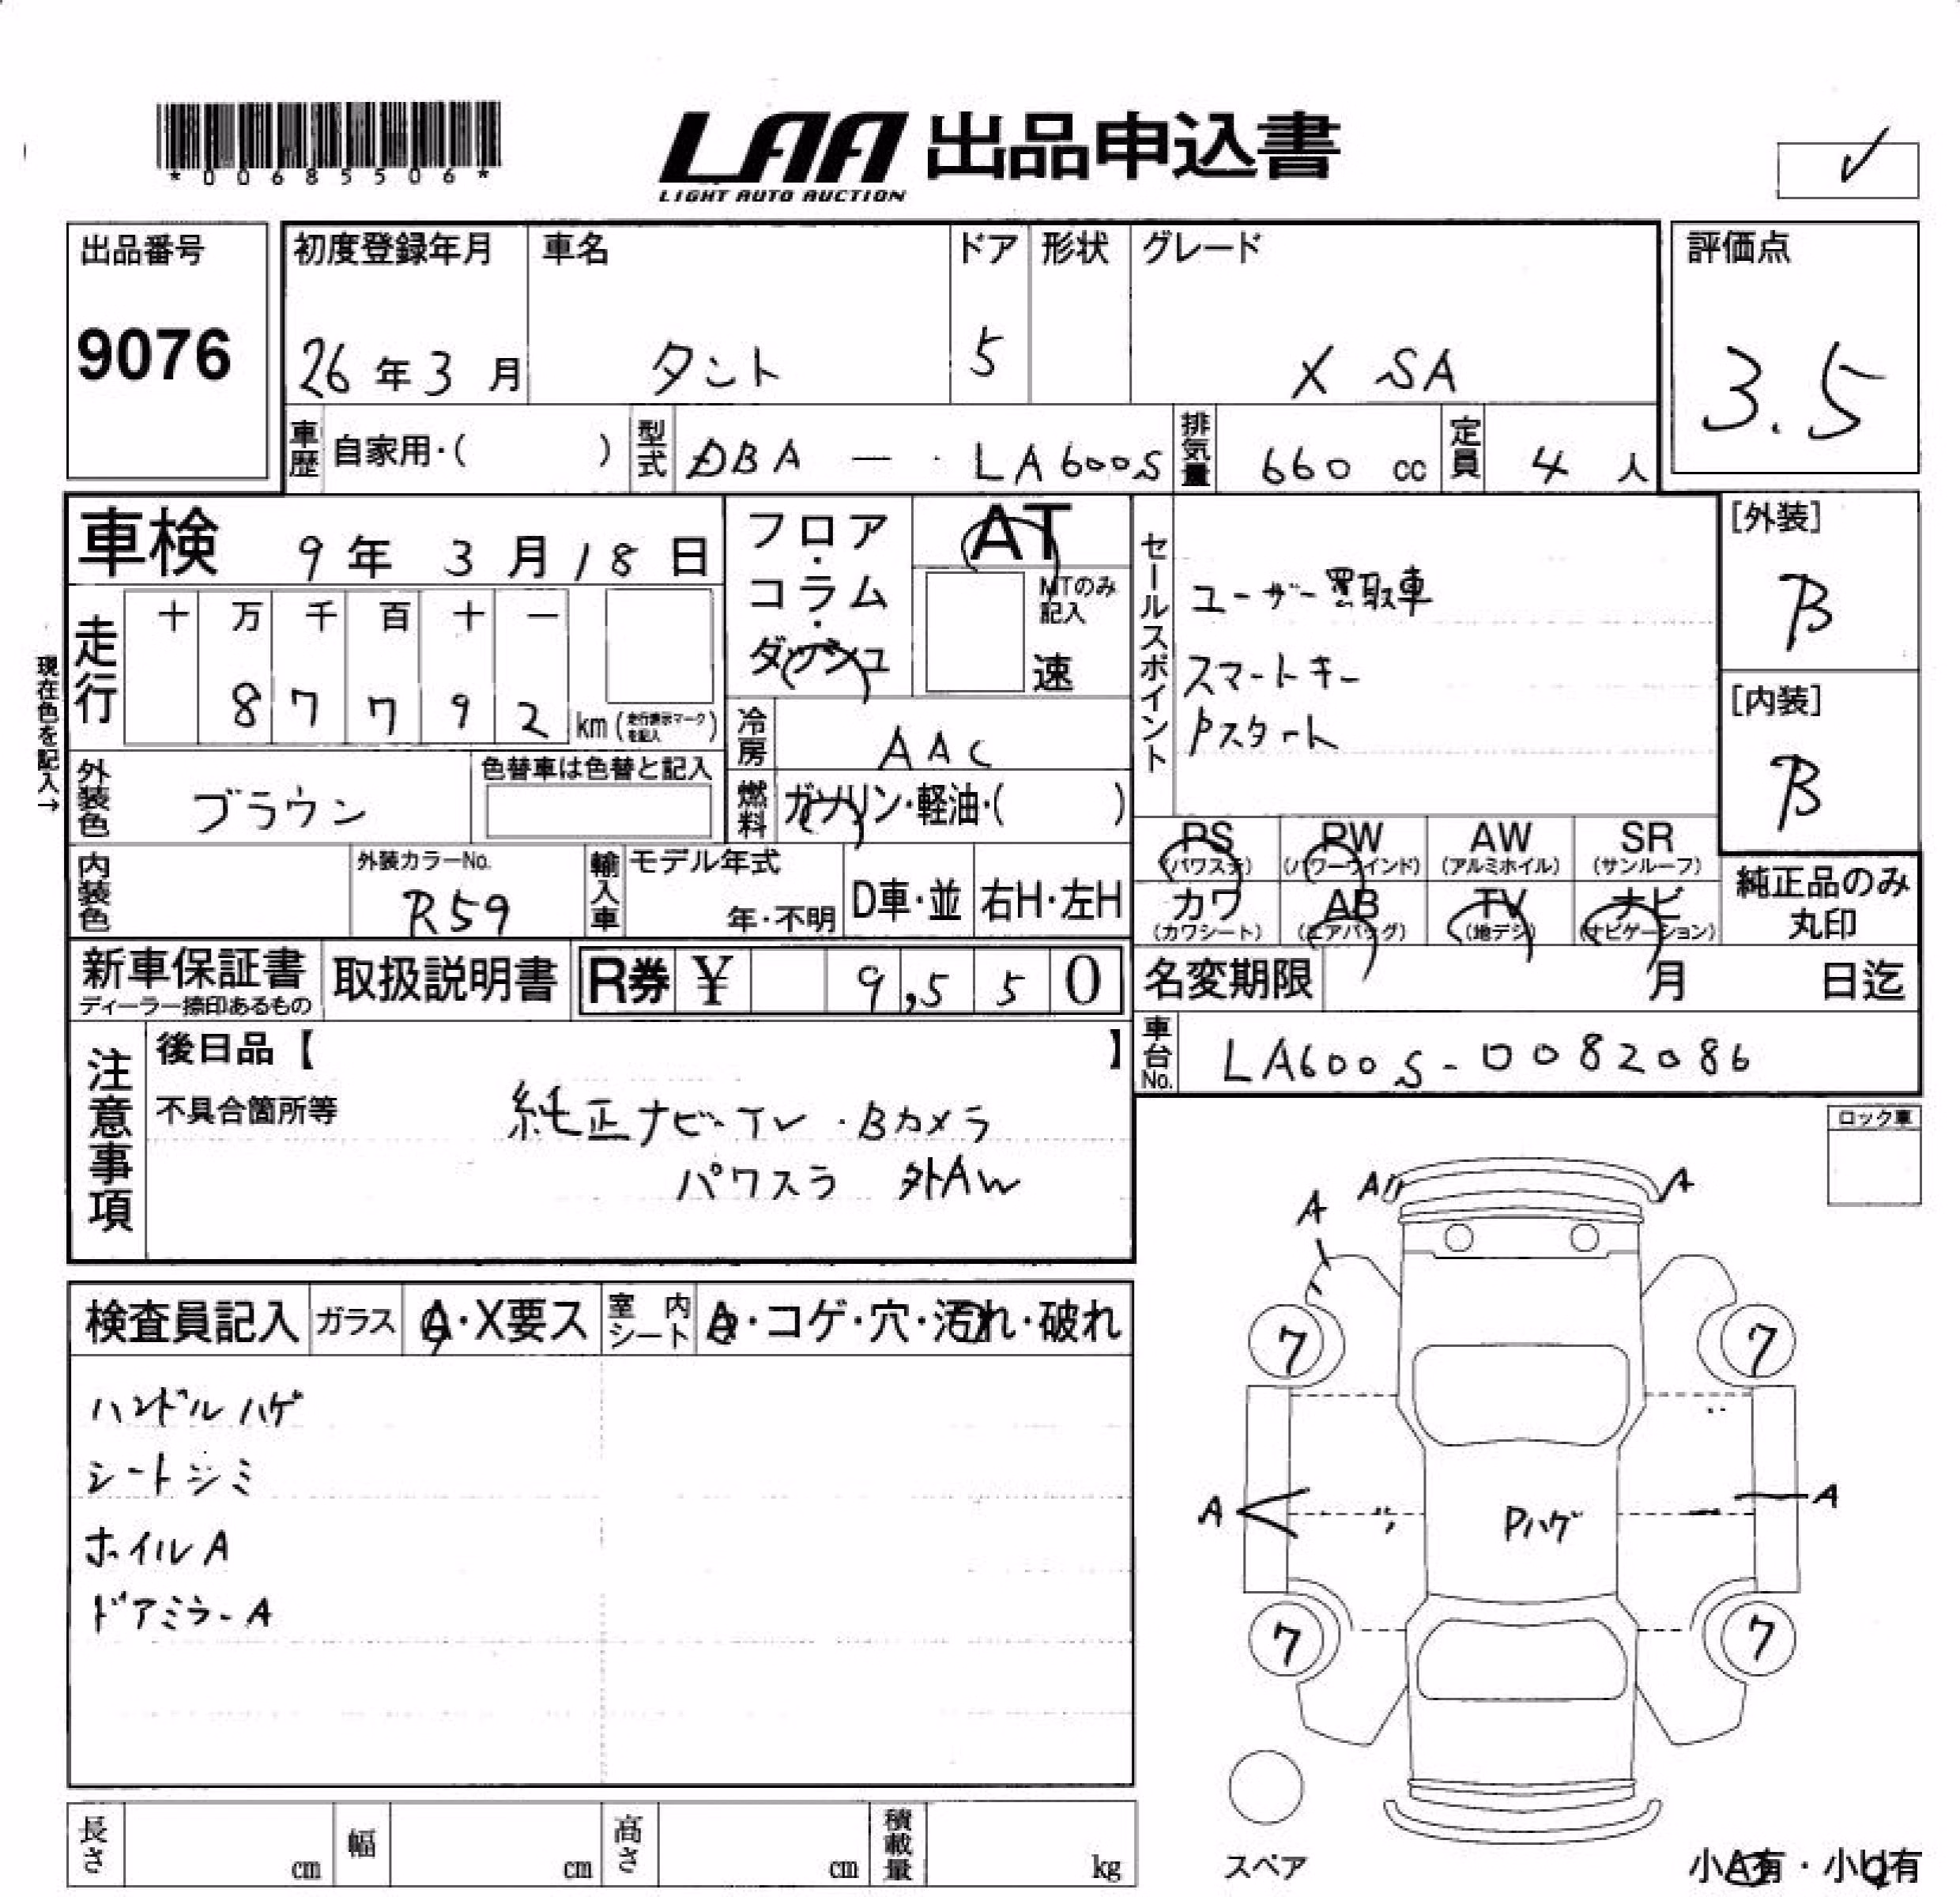 *00685506*
LAA 出品申込書
LIGHT AUTO AUCTION
出品番号
9076
初度登録年月
26年3月
車名
タント
ドア
5
形状
グレード
X SA
評価点
3.5
車歴 自家用・( )
型式 DBA — LA600S
排気量 660 cc
定員 4人
車検 9年 3月18日
フロア・コラム・ダッシュ
AT
MTのみ記入
速
セールスポイント
ユーザー買取車
スマートキー
Pスタート
[外装]
B
[内装]
B
現在色を記入→
走行
十 万 千 百 十 一
8 7 7 9 2 km (走行表示マークを記入)
冷房 AAC
外装色 ブラウン
色替車は色替と記入
燃料 ガソリン・軽油・( )
PS (パワステ)
PW (パワーウインド)
AW (アルミホイル)
SR (サンルーフ)
カワ (カワシート)
AB (エアバッグ)
TV (地デジ)
ナビ (ナビゲーション)
純正品のみ丸印
内装色
外装カラーNo.
R59
輸入車 モデル年式
年・不明
D車・並
右H・左H
新車保証書
ディーラー捺印あるもの
取扱説明書
R券 ¥ 9,550
名変期限 月 日迄
車台No. LA600S-0082086
注意事項
後日品【 】
不具合箇所等
純正ナビ・TV・Bカメラ
パワスラ 外AW
ロック車
検査員記入
ガラス A・X要ス
室内シート A・コゲ・穴・汚れ・破れ
ハンドルハゲ
シートシミ
ホイルA
ドアミラーA
A A
A
7 7
A A
Pハゲ
7 7
スペア
小A有・小U有
長さ cm
幅 cm
高さ cm
積載量 kg